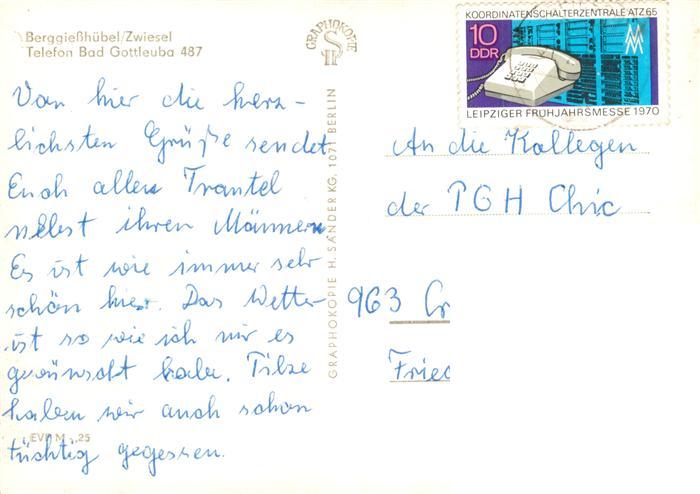 Berggießhübel/Zwiesel
Telefon Bad Gottleuba 487
Von hier die herz-
lichsten Grüße sendet
Euch allen Trantel
nebst ihren Männern
Es ist wie immer sehr
schön hier. Das Wetter
ist so wie ich mir es
gewünscht habe. Pilze
haben wir auch schon
tüchtig gegessen.
EVP M -,25
GRAPHOKOPIE
GRAPHOKOPIE H. SANDER KG, 1071 BERLIN
KOORDINATENSCHALTERZENTRALE ATZ 65
10
DDR
LEIPZIGER FRÜHJAHRSMESSE 1970
An die Kollegen
der PGH Chic
963 Cr
Fried